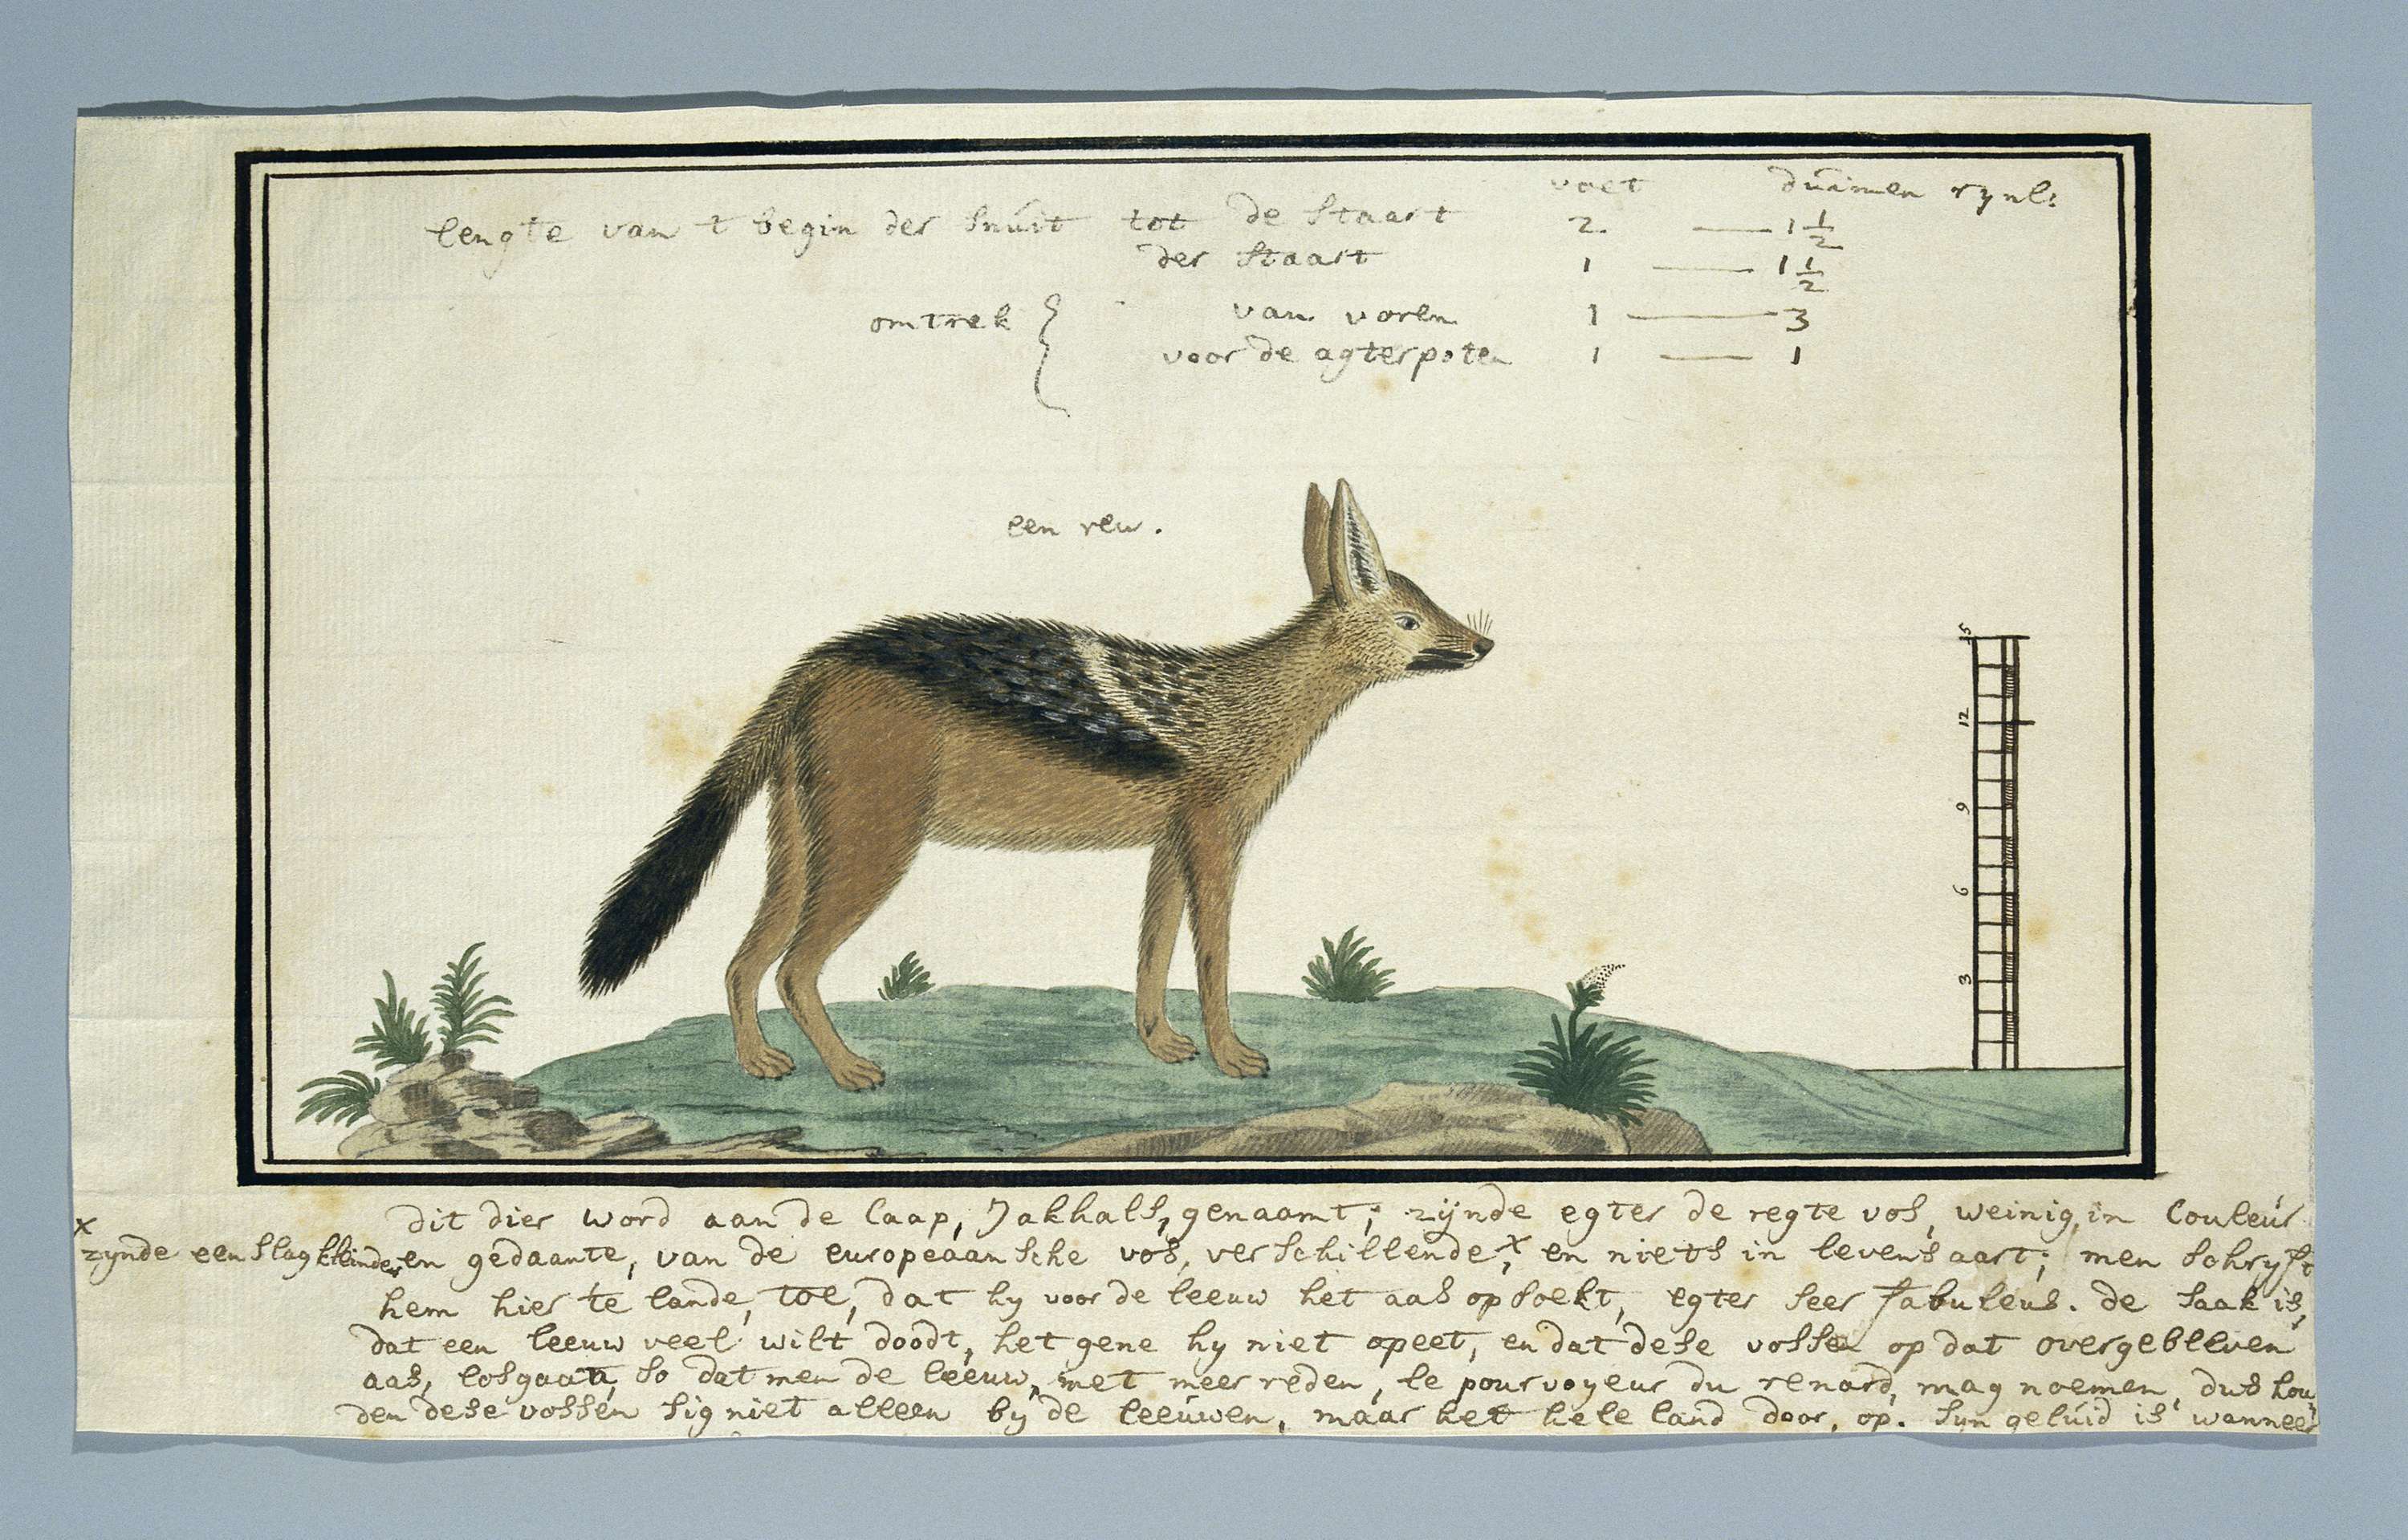 voet duimen rynl:
lengte van t begin der snuit tot de staart 2 — 1 1/2
der staart 1 — 1 1/2
omtrek { van voren 1 — 3
voor de agterpoten 1 — 1
een reu.
15
12
9
6
3
dit dier word aan de Caap, Jakhals, genaamt; zijnde egter de regte vos, weinig, in Couleur
x zynde een slag kleinder, en gedaante, van de europeaansche vos, verschillende, x en niets in levens aart; men schryft
hem hier te lande, toe, dat hy voor de leeuw het aas opsoekt, egter seer fabuleus. de saak is,
dat een leeuw veel wilt doodt, het gene hy niet opeet, en dat dese vossen op dat overgebleven
aas, losgaan, so dat men de leeuw, met meer reden, le pourvoyeur du renard, mag noemen, dus hou
den dese vossen sig niet alleen by de leeuwen, maar het hele land door, op. syn geluid is wanneer